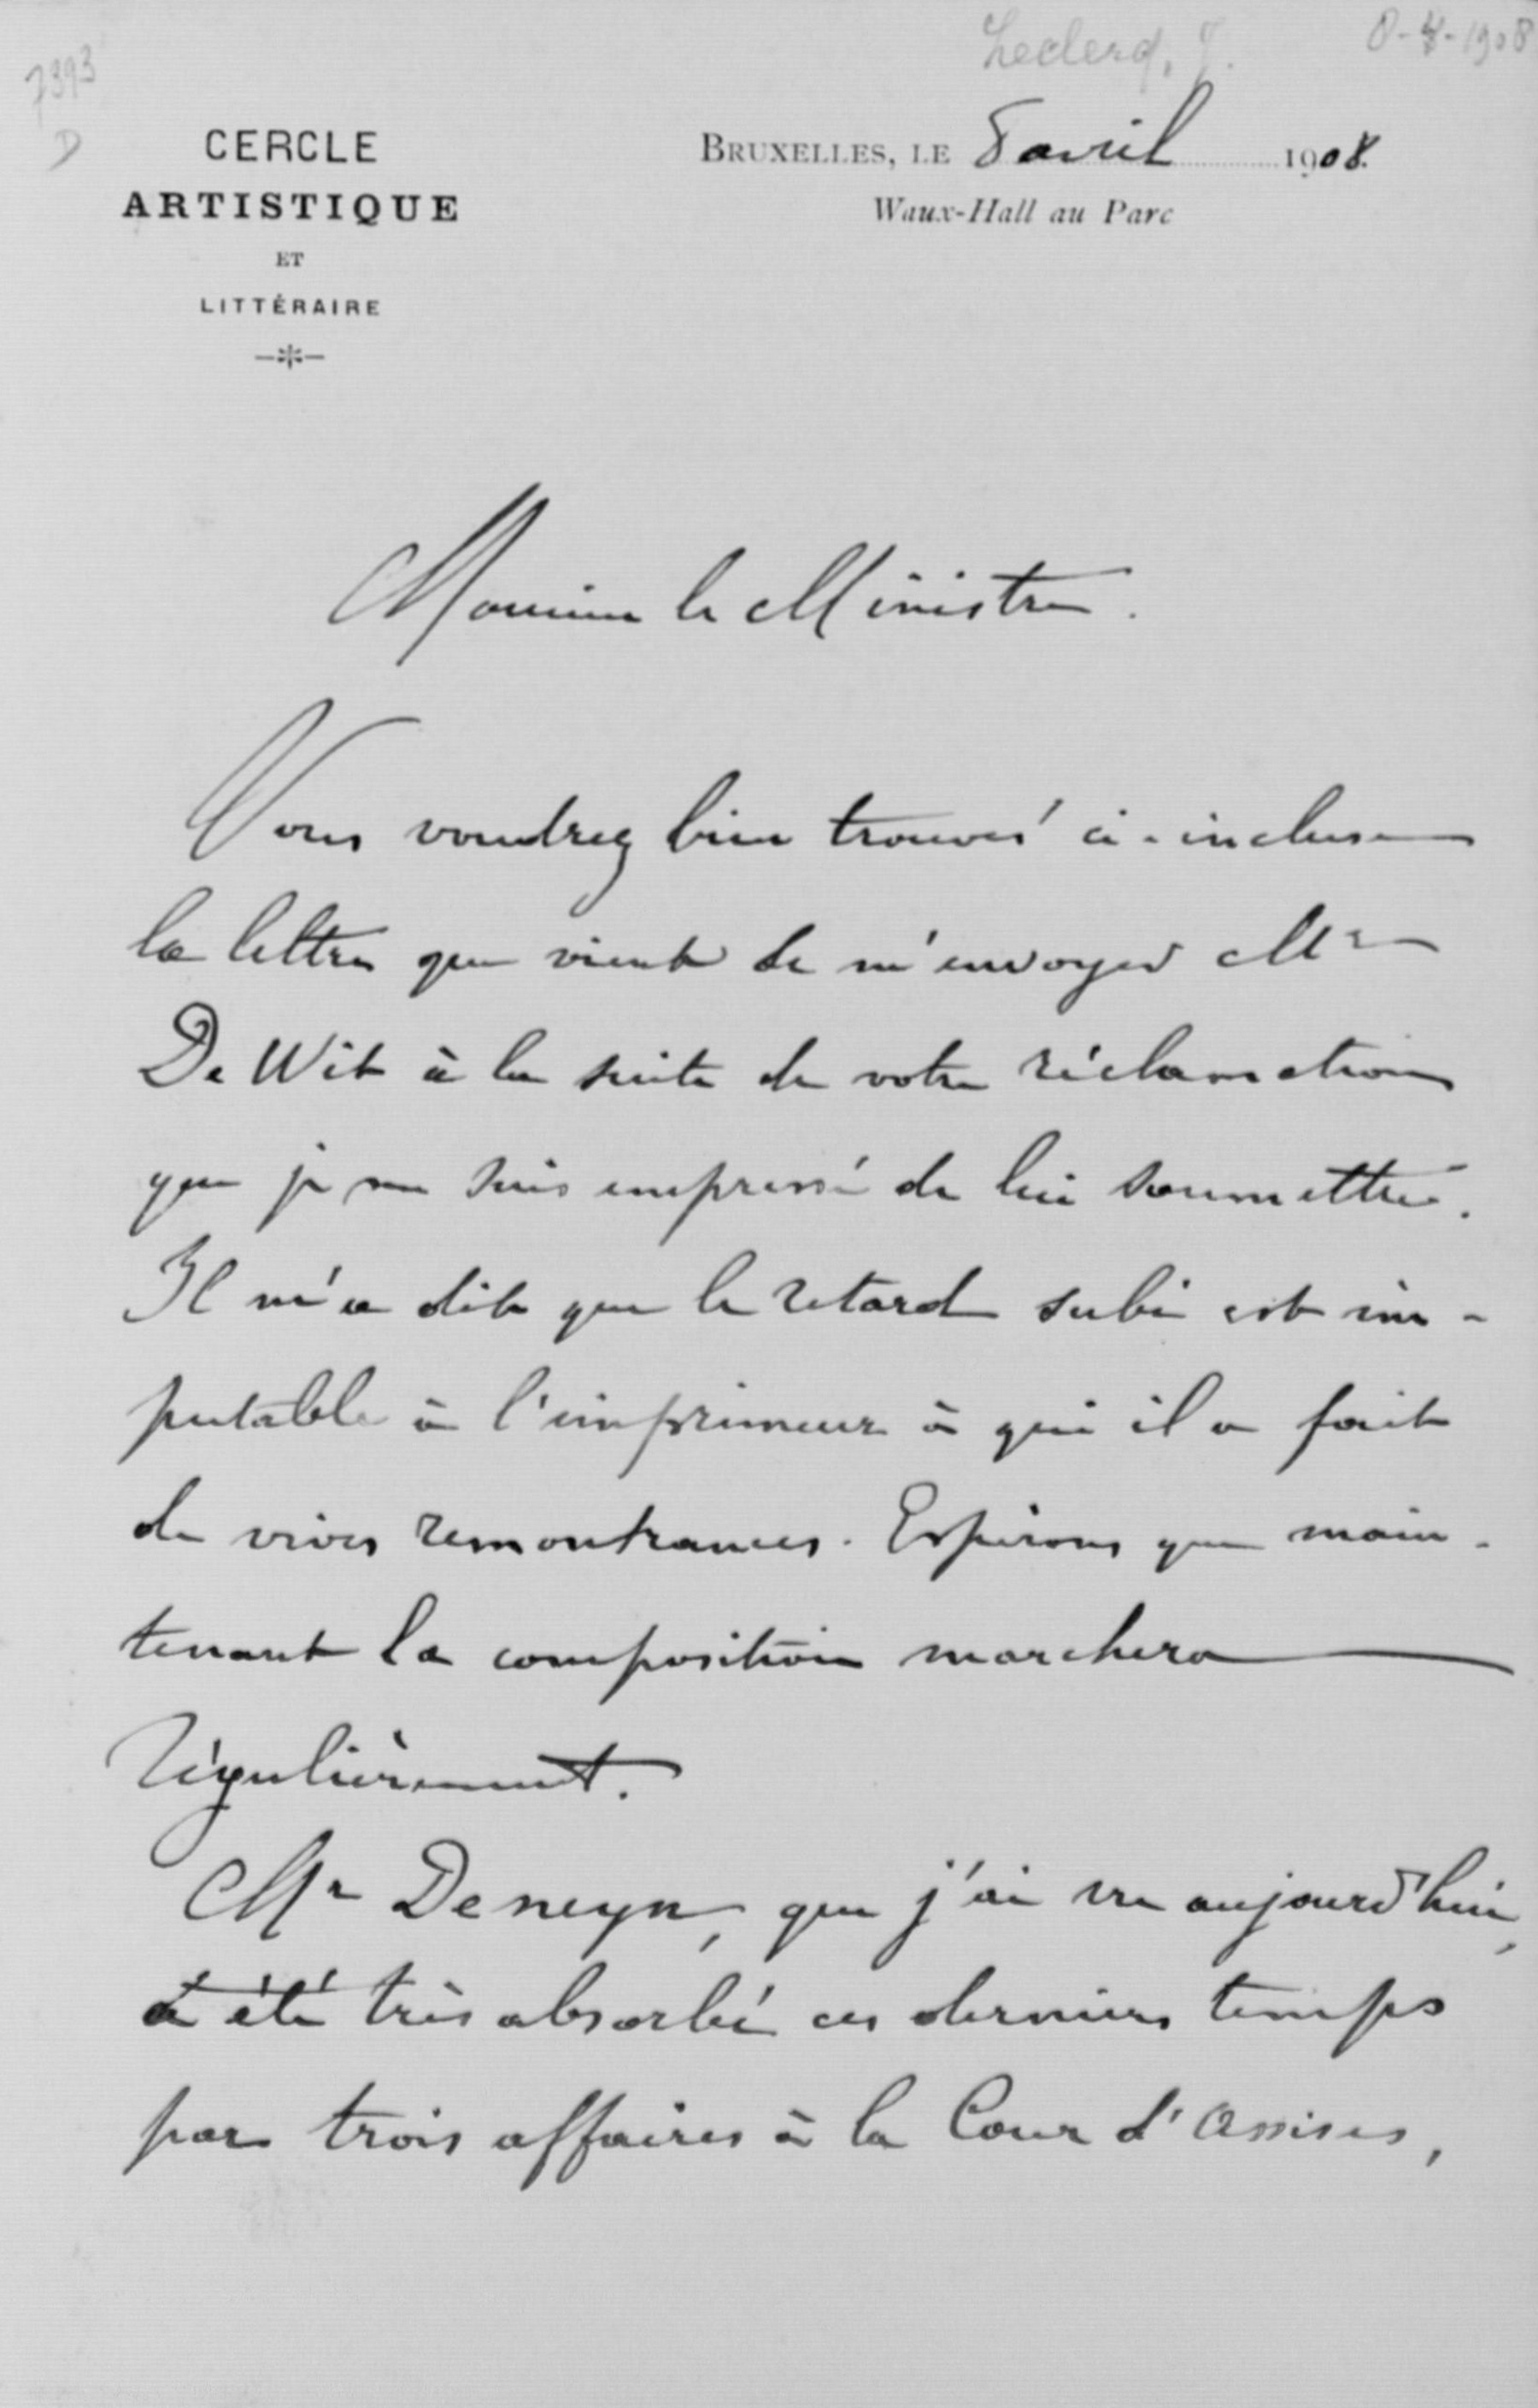 Leclercq, J.
8-4-1908
7393
D
CERCLE
ARTISTIQUE
ET
LITTÉRAIRE
BRUXELLES, LE 8 avril 1908.
Waux-Hall au Parc
Monsieur le Ministre.
Vous voudrez bien trouver ci-incluse
la lettre que vient de m'envoyer Mr
De Wit à la suite de votre réclamation
que je me suis empressé de lui soumettre.
Il m'a dit que le retard subi est im-
putable à l'imprimeur à qui il a fait
de vives remontrances. Espérons que main-
tenant la composition marchera
régulièrement.
Mr Deneyn, que j'ai vu aujourd'hui,
a été très absorbé ces derniers temps
par trois affaires à la Cour d'Assises,